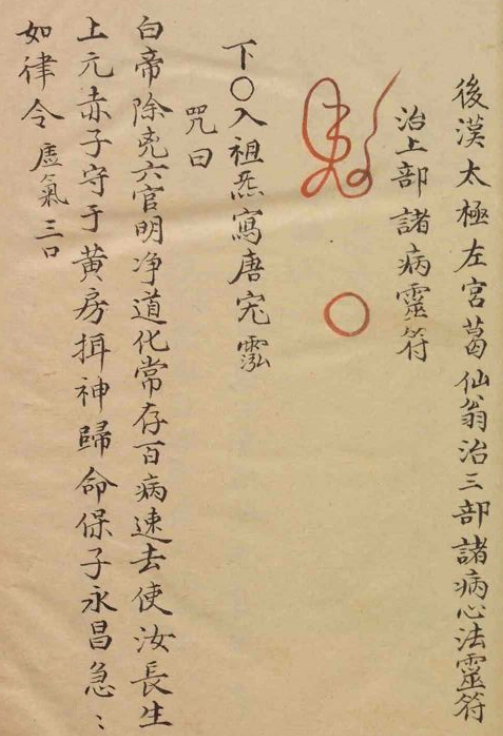 後漢太極左宮葛仙翁治三部諸病心法靈符
治上部諸病靈符
下〇入祖炁寫唐宄霐
咒曰
白帝除兇六官明净道化常存百病速去使汝長生
上元赤子守于黄房揖神歸命保子永昌急〻
如律令 虛氣三口